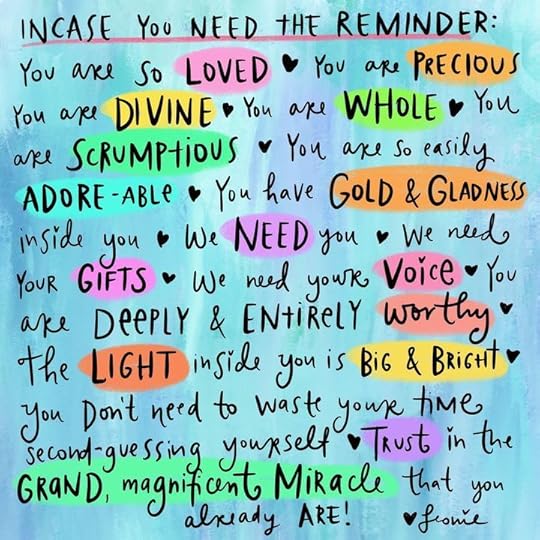 INCASE YOU NEED THE REMINDER:
You are so LOVED ♥ You are PRECIOUS
You are DIVINE ♥ You are WHOLE ♥ You
are SCRUMPTIOUS ♥ You are so easily
ADORE-ABLE ♥ You have GOLD & GLADNESS
inside you ♥ We NEED you ♥ We need
YOUR GIFTS ♥ We need your Voice ♥ You
are DEEPLY & ENTIRELY worthy ♥
The LIGHT inside you is BIG & BRIGHT ♥
you Don't need to waste your time
second-guessing yourself ♥ TRUST in the
GRAND, magnificent MIRACLE that you
already ARE! ♥ Leonie